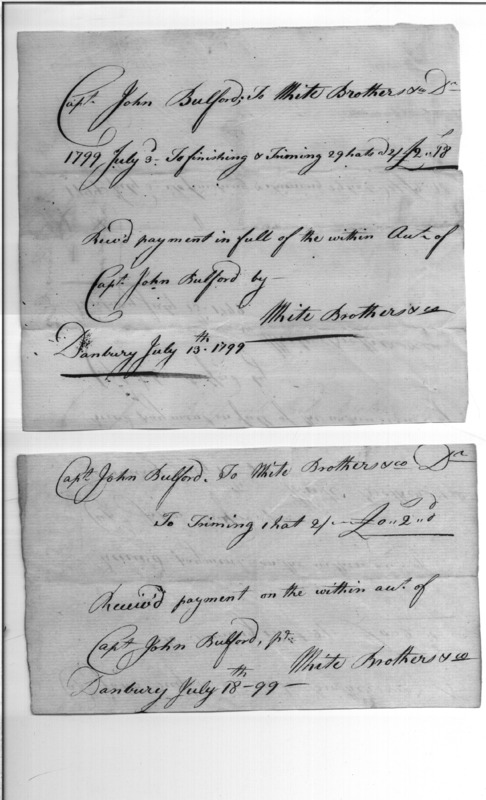 Capt. John Bulford, To White Brothers & co Dr
1799 July 3d. To finishing & Triming 29 hats @ 2/ £2"18
Recd payment in full of the within Acct. of
Capt. John Bulford by
White Brothers & co
Danbury July 13th. 1799
Capt. John Bulford. To White Brothers & co Dr
To Triming 1 hat 2/ - £0"2"d
Receiv'd payment on the within act. of
Capt. John Bulford, pr.
White Brothers & co
Danbury July 18th - 99 -